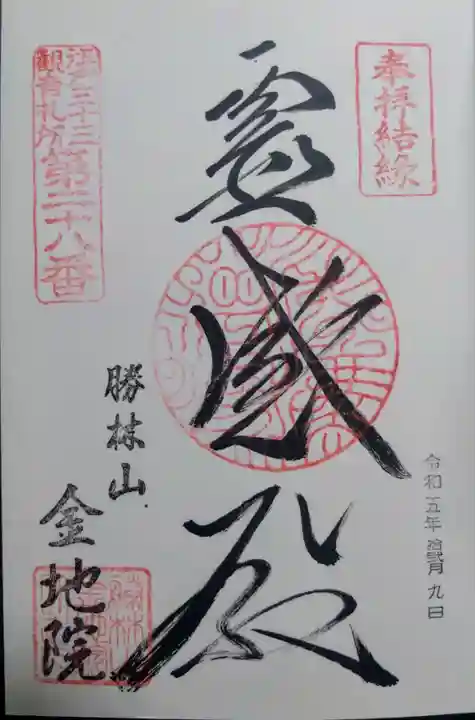 奉拝結縁
令和五年拾弐月九日
靈感殿
江戸三十三
観音札所
第二十八番
勝林山
金地院